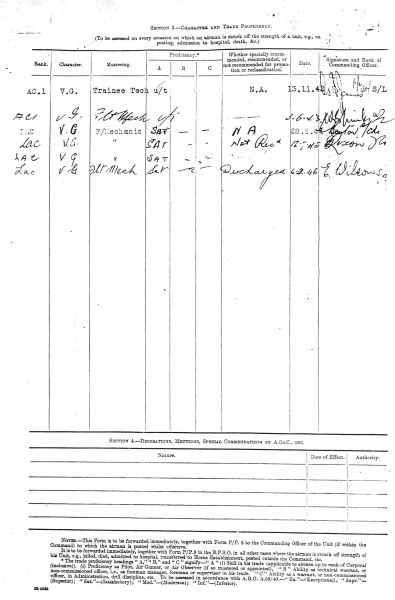 SECTION 3.—CHARACTER AND TRADE PROFICIENCY.
(To be assessed on every occasion on which an airman is struck off the strength of a unit, e.g., on
posting, admission to hospital, death, &c.)
Rank. Character. Mustering. Proficiency.* Whether specially recommended, recommended, or not recommended for promotion or reclassification. Date. Signature and Rank of Commanding Officer.
A B C
AC.1 V.G. Trainee Tech u/t N.A. 13.11.4 S/L
AC1 V.G. Flt Mech u/t — — 3.6.43
LAC V.G. F/Mechanic SAT — — N A 28.2.
Lac V.G. " SAT — — Not Rec'd 12. 45
LAC V G " SAT — -
Lac V G Flt Mech Sat — - Discharged 6.2.46 E Wilson
SECTION 4.—DECORATIONS, MENTIONS, SPECIAL COMMENDATIONS BY A.O.C., ETC.
Nature. Date of Effect. Authority.
NOTES.—This Form is to be forwarded immediately, together with Form P/P. 8 to the Commanding Officer of the Unit (if within the
Command) to which the airman is posted whilst effective.
It is to be forwarded immediately, together with Form P/P.8 to the B.P.S.O. in all other cases where the airman is struck off strength of
his Unit, e.g., killed, died, admitted to hospital, transferred to Home Establishment, posted outside the Command, etc.
* The trade proficiency headings "A," "B," and "C" signify:—"A" (i) Skill in his trade (applicable to airmen up to rank of Corporal
(inclusive). (ii) Proficiency as Pilot, Air Gunner, or Air Observer (if so mustered or appointed). "B" Ability as technical warrant, or
non-commissioned officer, i.e., as foreman manager, foreman or supervisor in his trade. "C" Ability as warrant, or non-commissioned
officer, in Administration, drill discipline, etc. To be assessed in accordance with A.R.O. A.
(Superior); "Sat."—(Satisfactory); "Mod."—(Moderate); "Inf."—(Inferior).